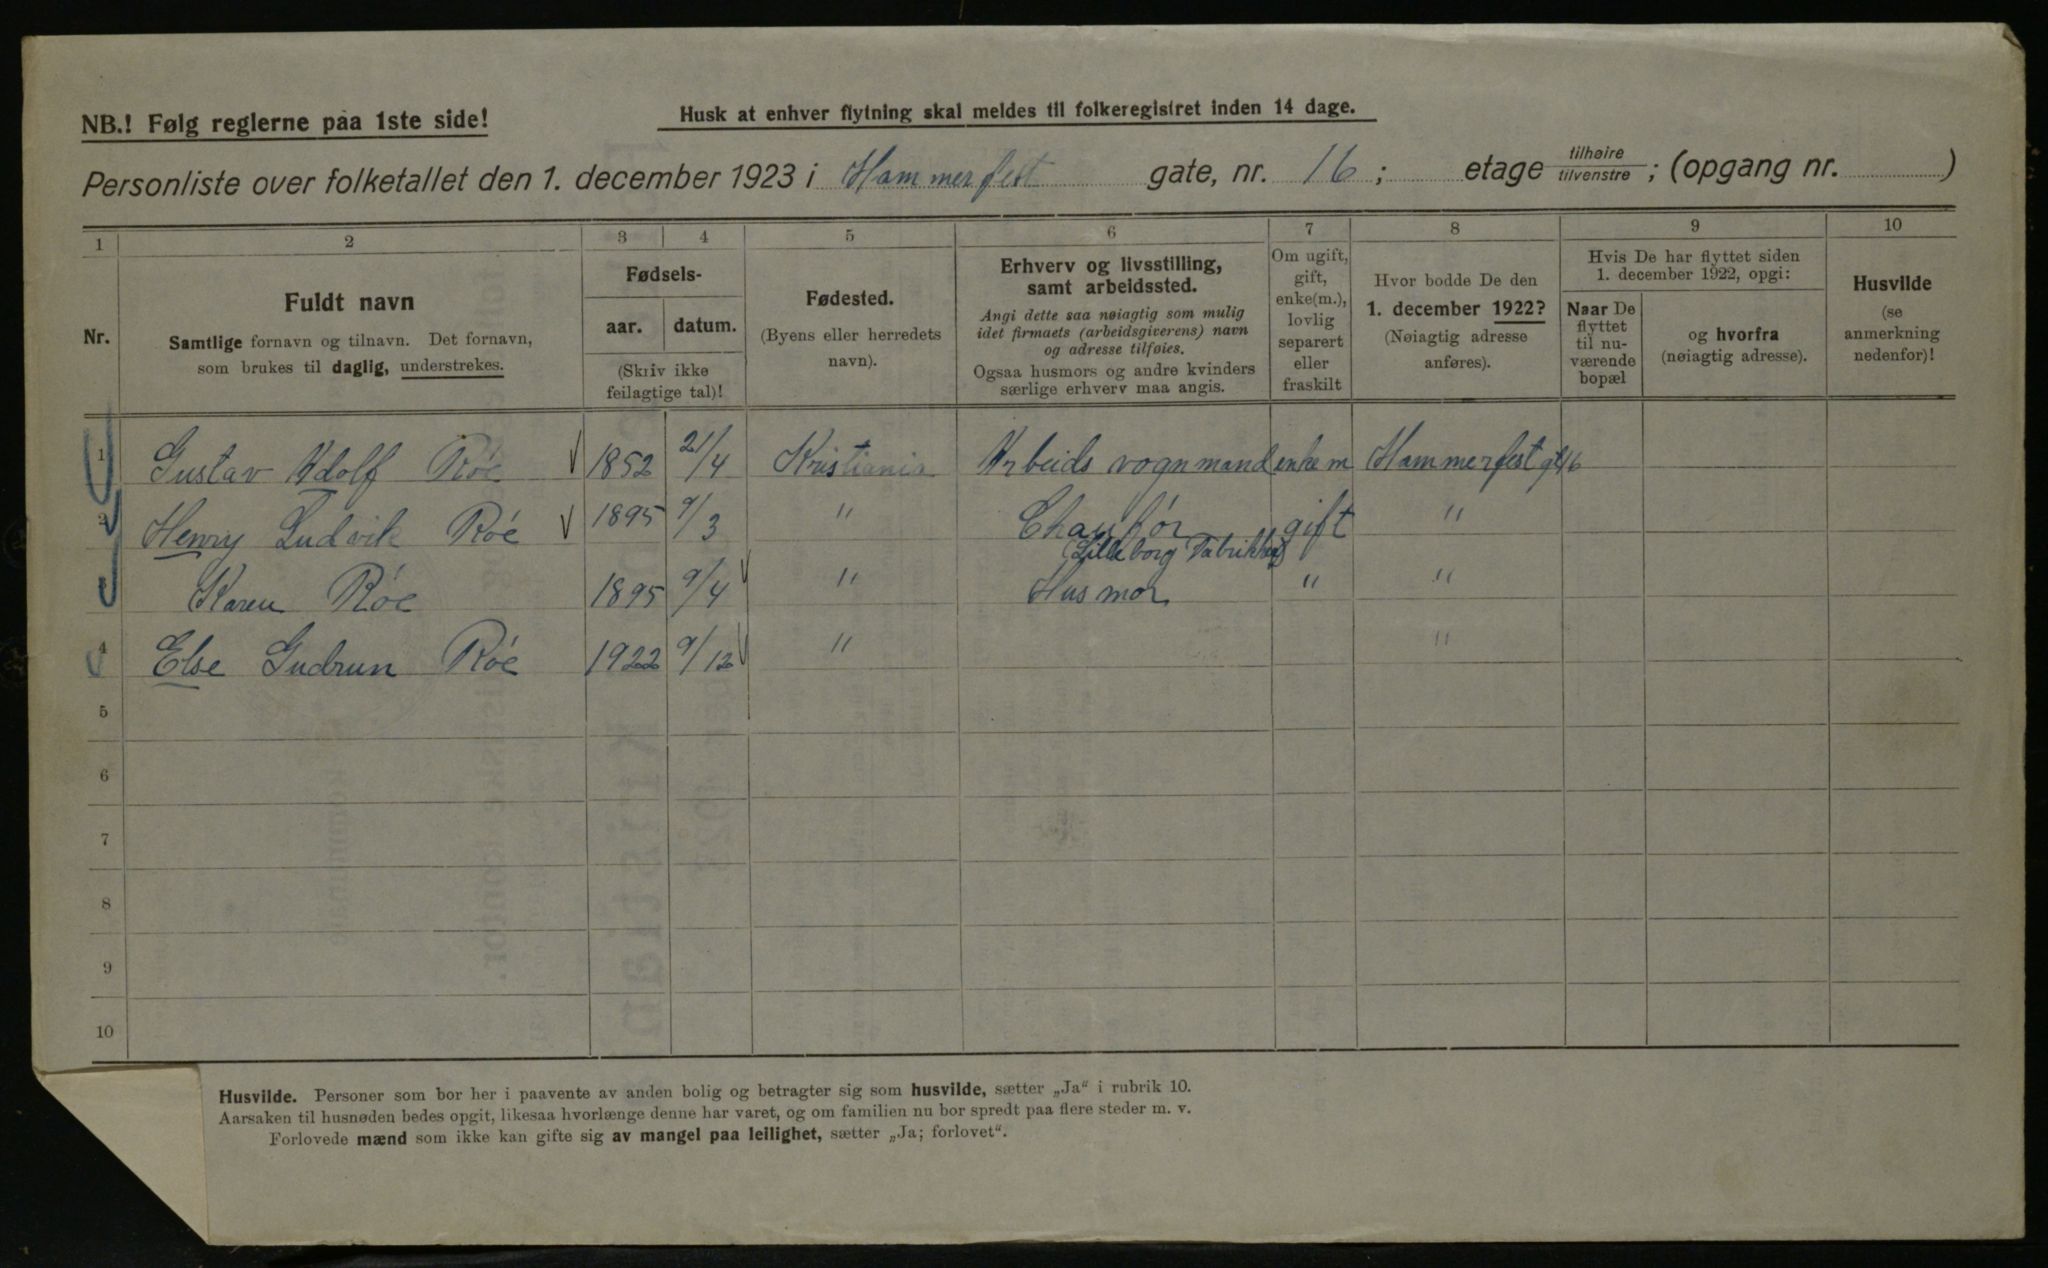 NB.! Følg reglerne paa 1ste side!
Husk at enhver flytning skal meldes til folkeregistret inden 14 dage.
Personliste over folketallet den 1. december 1923 i Hammerfest gate, nr. 16 ; etage tilhøire tilvenstre ; (opgang nr. )
1 2 3 4 5 6 7 8 9 10
Nr.
Fuldt navn
Samtlige fornavn og tilnavn. Det fornavn,
som brukes til daglig, understrekes.
Fødsels-
aar. datum.
(Skriv ikke
feilagtige tal)!
Fødested.
(Byens eller herredets
navn).
Erhverv og livsstilling,
samt arbeidssted.
Angi dette saa nøiagtig som mulig
idet firmaets (arbeidsgiverens) navn
og adresse tilføies.
Ogsaa husmors og andre kvinders
særlige erhverv maa angis.
Om ugift,
gift,
enke(m.),
lovlig
separert
eller
fraskilt
Hvor bodde De den
1. december 1922?
(Nøiagtig adresse
anføres).
Hvis De har flyttet siden
1. december 1922, opgi:
Naar De
flyttet
til nu-
værende
bopæl
og hvorfra
(nøiagtig adresse).
Husvilde
(se
anmerkning
nedenfor)!
1 Gustav Adolf Róe 1852 21/4 Kristiania Arbeids vognmand enkem Hammerfest gt 16
2 Henry Ludvik Róe 1895 9/3 " Chauffór gift "
(Lilleborg Fabrikker)
Karen Róe 1895 9/4 " Husmor " "
4 Else Gudrun Róe 1922 9/12 " "
5
6
7
8
9
10
Husvilde. Personer som bor her i paavente av anden bolig og betragter sig som husvilde, sætter „Ja“ i rubrik 10.
Aarsaken til husnøden bedes opgit, likesaa hvorlænge denne har varet, og om familien nu bor spredt paa flere steder m. v.
Forlovede mænd som ikke kan gifte sig av mangel paa leilighet, sætter „Ja; forlovet“.